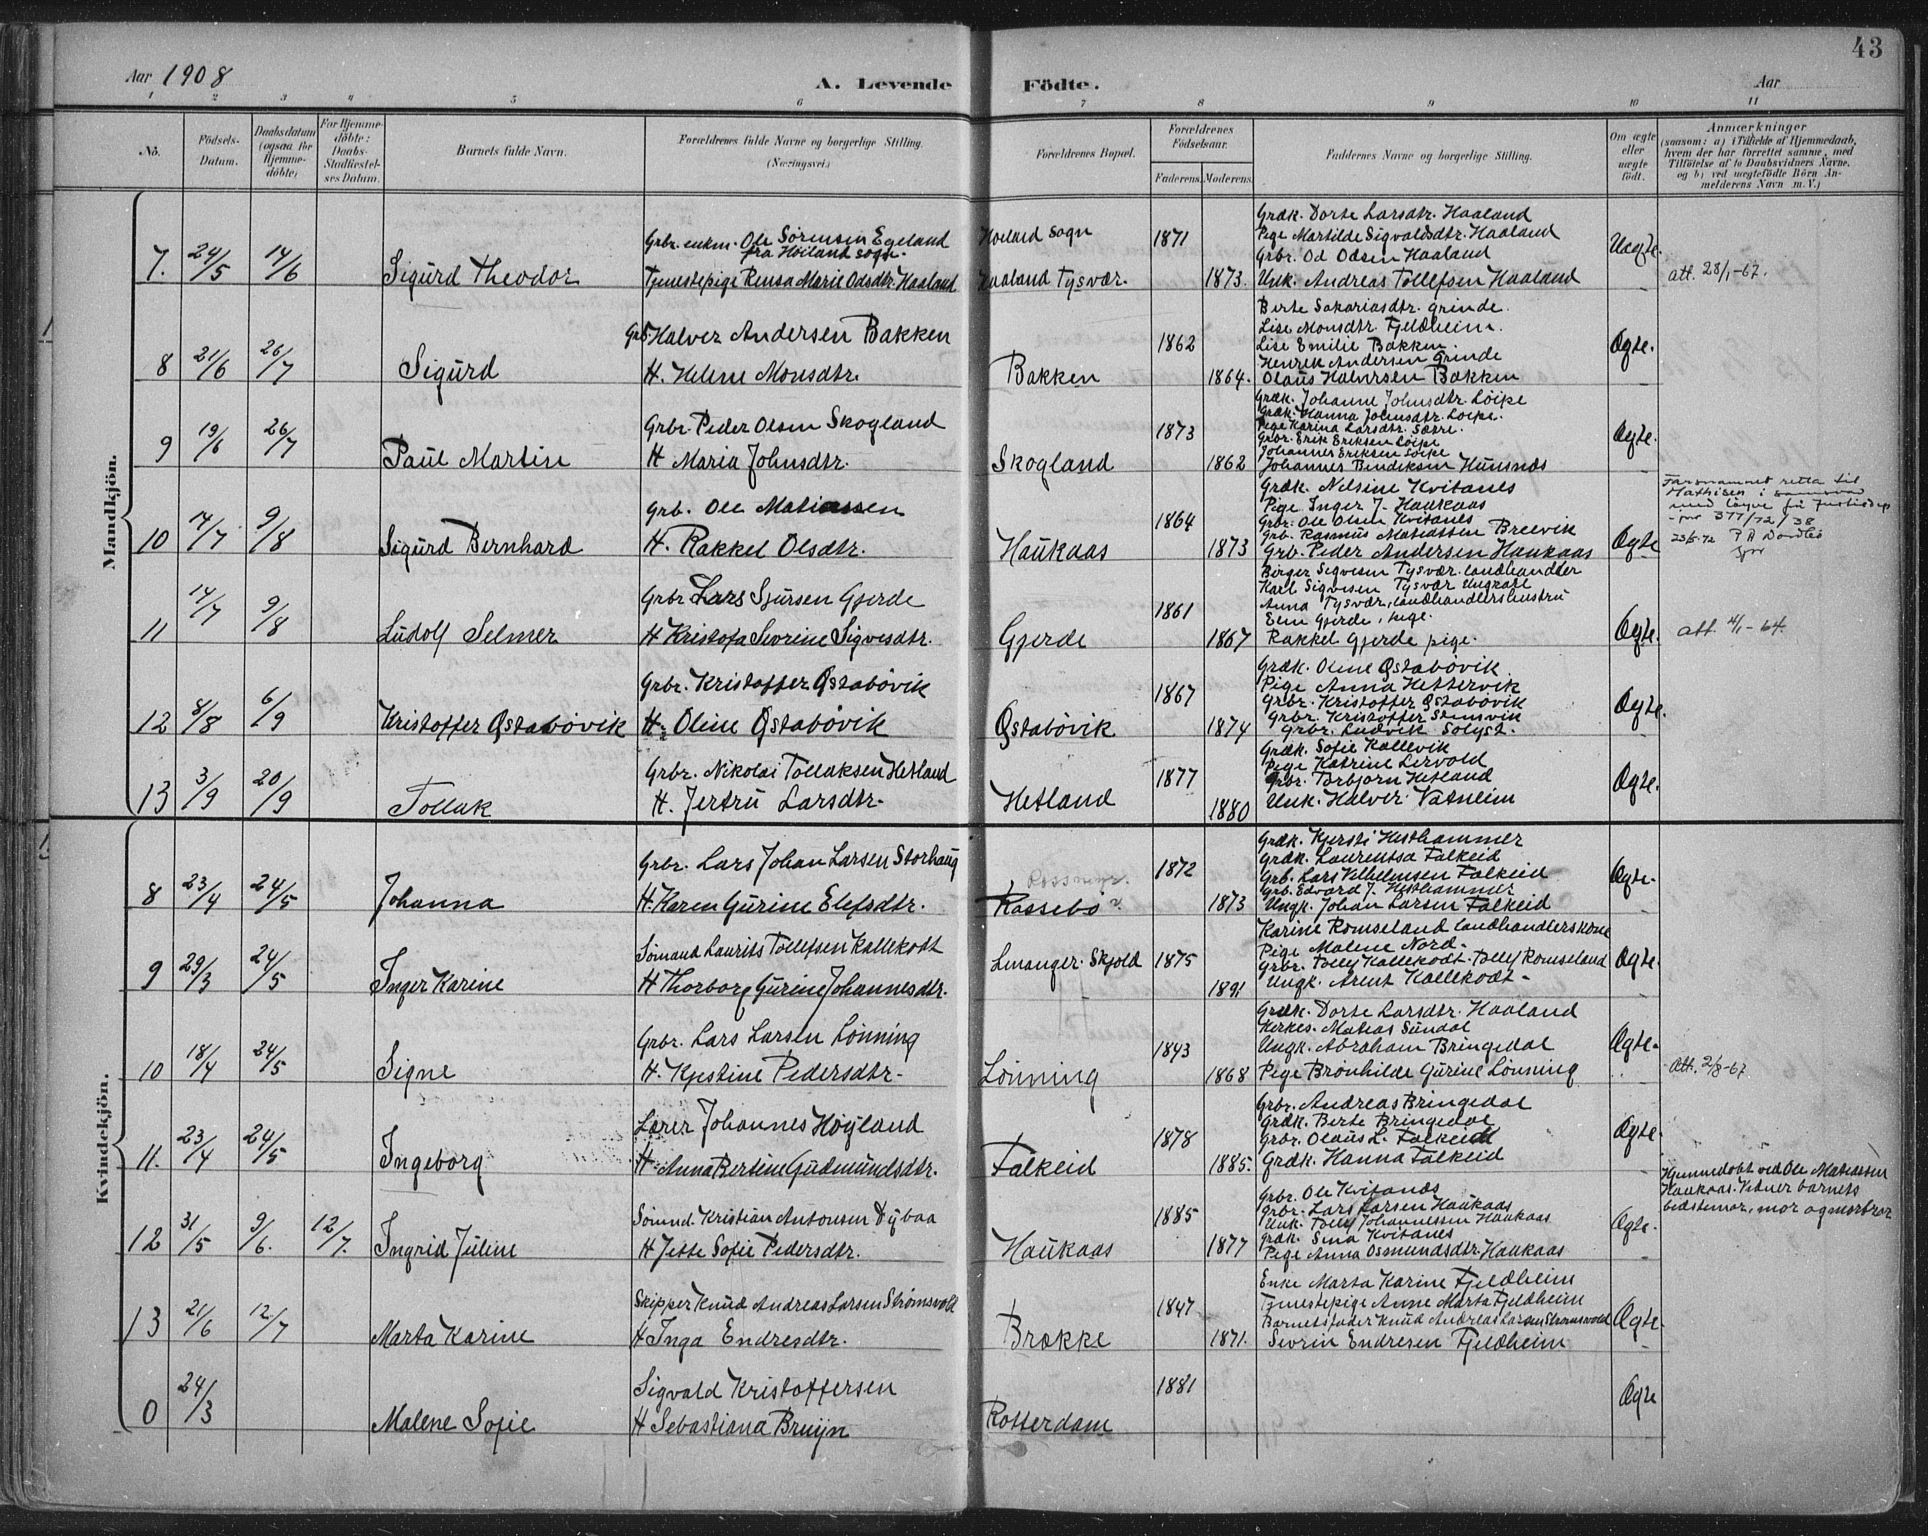 43
Aar 1908
A. Levende Födte.
Aar
1 2 3 4 5 6 7 8 9 10 11
No.
Födsels-Datum.
Daabsdatum (ogsaa for Hjemmedöbte)
For Hjemmedöbte: Daabs-Stadfæstelses Datum.
Barnets fulde Navn.
Forældrenes fulde Navne og borgerlige Stilling. (Næringsvei.)
Forældrenes Bopæl.
Forældrenes Födselsaar.
Faderens. Moderens.
Faddernes Navne og borgerlige Stilling.
Om ægte eller uægte födt.
Anmærkninger
(saasom: a) i Tilfælde af Hjemmedaab,
hvem der har forrettet samme, med
Tilföielse af to Daabsvidners Navne,
og b) ved uægtefödte Börn Anmelderens Navn m. V.)
Mandkjön.
7. 24/5 14/6 Sigurd Theodor
Grbr. enkm. Ole Sørensen Egeland
fra Høiland sogn.
Tjenestepige Rensa Marie Odsdtr. Haaland
Høiland sogn
Haaland Tysvær.
1871
1873.
Græk. Dorte Larsdtr. Haaland
Pige Martilde Sigvaldsdtr. Haaland
Grbr. Od Odsen Haaland
Unk. Andreas Tollefsen Haaland
Uægte.
att. 28/1-67.
8 21/6 26/7 Sigurd
Grb. Halver Andersen Bakken
H. Helene Monsdtr.
Bakken
1862
1864.
Berte Sakariasdtr. Grinde.
Lise Monsdtr. Fjeldheim.
Lise Emilie Bakken.
Henrik Andersen Grinde
Olaus Halversen Bakken
Ægte.
9 19/6 26/7 Paul Martin
Grbr. Peder Olsen Skogland
H Maria Johnsdtr.
Skogland
1873
1862
Græk. Johanne Johnsdtr. Loipe
Græk. Hanna Johnsdtr. Loipe.
Pige Karina Larsdtr.
Grbr. Erik Eriksen Loipe
Johannes Eriksen Loipe
Johannes Bendiksen Hunsnæs
Ægte.
10 14/7 9/8 Sigurd Bernhard
Grb. Ole Matiassen
H. Rakkel Olsdtr.
Haukaas
1864
1873
Græk. Nelsine Kvitanes
Pige Inger J. Haukaas
Grbr. Ole Olsen Kvitanes
Grb. Rasmus Matiassen Breevik
Grb. Peder Andersen Haukaas
Ægte
Farsnamnet retta til
Mathisen i samsvar
med løyve frå
377/72/38
23/5-72
11 14/7 9/8 Ludolf Selmer
Grbr Lars Sjursen Gjerde
H Kristofa Sevrine Sigvesdtr.
Gjerde
1861
1867
Birger Sigvesen Tysvær. landhandler
Karl Sigvesen Tysvær Ungkarl
Anna Tysvær, landhandlershustru
Elen Gjerde, pige.
Rakkel Gjerde pige.
Ægte.
att. 4/1-64.
12 8/8 6/9 Kristoffer Østabövik
Grbr. Kristoffer Østabövik
H. Oline Østabövik
Østabövik
1867
1874
Græk. Oline Østabövik
Pige Anna Hettervik
Grbr. Kristoffer Østabövik
Grbr. Kristoffer Stemsvik
Grbr. Ludvik Solyst.
Ægte.
13 3/9 20/9 Tollak
Grbr. Nikolai Tollaksen Hetland
H. Jertru Larsdtr.
Hetland
1877
1880
Græk. Sofie Kallevik
Pige Katrine Lervold
Grbr. Torbjørn Hetland
Unk. Halver Vatneim
Ægte.
Kvindekjön.
8 23/4 24/5 Johanna
Grbr. Lars Johan Larsen Storhaug
H. Karen Gurine Elefsdtr.
Rossebø?
1872
1873
Græk. Kjersti Hesthammer
Græk. Laurentsa Falkeid
Grb. Lars Vilhelmsen Falkeid
Grb. Edvard J. Hesthammer
Ungk. Johan Larsen Falkeid
Ægte.
9 29/3 24/5 Inger Karine
Sömand Laurits Tollefsen Kallekodt
H Thorborg Gurine Johannesdtr.
Lmanger. Skjold
1875
1891
Karine Romseland landhandlerskone
Pige Malene Nord.
Grbr. Tolly Kallekodt. Tolly Romseland
Ungk. Arent Kallekodt.
Ægte.
10 18/4 24/5 Signe
Grbr. Lars Larsen Lönning
H. Kjestine Pedersdtr.
Lönning
1843
1868
Græk. Dorte Larsdtr. Haaland
Kirkes. Matias Sundal
Ungk. Abraham Bringedal
Pige Brönhilde Gurine Lönning
Ægte.
Att. 2/8-67
11. 23/4 24/5 Ingeborg
Lærer Johannes Höyland
H. Anna Bertine Gudmundsdtr.
Falkeid
1878
1885.
Grbr. Andreas Bringedal
Græk. Berte Bringedal
Grbr. Olaus L. Falkeid
Græk. Hanna Falkeid
Ægte.
12 31/5 9/6. 12/7. Ingrid Juline
Sömnd. Kristian Antonsen Dybaa
H Jette Sofie Pedersdtr.
Haukaas
1885
1877
Grbr. Ole Kvitanes
Grbr. Lars Larsen Haukaas
Unk. Tolly Johannessen Haukaas
Græk. Sina Kvitanes
Pige Anna Osmundsdtr. Haukaas
Ægte.
Hjemmedöbt ved Ole Matiassen
Haukaas. Vitner barnets
bedstemor, mor og morbror
13 21/6 12/7 Marta Karine
Skipper Knud Andreas Larsen Strömsvold
H Inga Endresdtr.
Brække
1847
1871.
Enke Marta Karine Fjeldheim
Tjenestepige Anne Marta Fjeldheim
Barnetsfader Knud Andreas Larsen Strømsvold
Sevrin Endresen Fjeldheim
Ægte.
0 24/3 Malene Sofie
Sigvald Kristoffersen
H Sebastiana Bruijn
Rotterdam
1881
Ægte